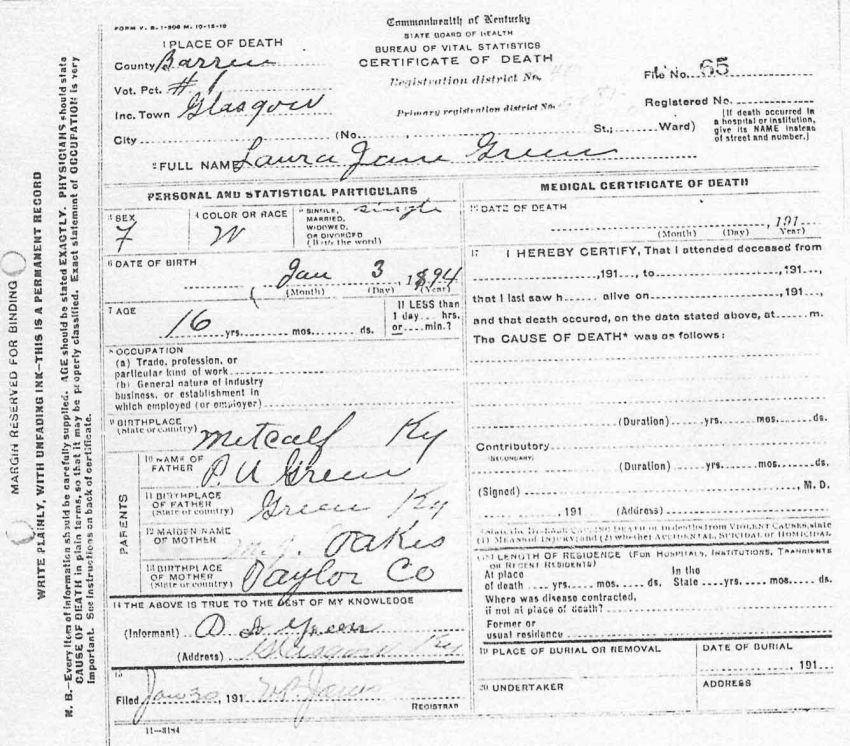 FORM V. S. 1-500 M. 10-15-10
Commonwealth of Kentucky
STATE BOARD OF HEALTH
BUREAU OF VITAL STATISTICS
CERTIFICATE OF DEATH
1 PLACE OF DEATH
County Barren
Vot. Pct. # 1
Inc. Town Glasgow
City
Registration district No.
Primary registration district No.
File No. 65
Registered No.
[If death occurred in a hospital or institution, give its NAME instead of street and number.]
(No. , St.; Ward)
2 FULL NAME Laura Jane Green
PERSONAL AND STATISTICAL PARTICULARS
3 SEX F
4 COLOR OR RACE W
5 SINGLE, MARRIED, WIDOWED, OR DIVORCED (Write the word) single
6 DATE OF BIRTH Jan 3, 1894
(Month) (Day) (Year)
7 AGE 16 yrs. mos. ds.
If LESS than 1 day hrs. or min.?
8 OCCUPATION
(a) Trade, profession, or particular kind of work
(b) General nature of industry business, or establishment in which employed (or employer)
9 BIRTHPLACE (State or country) Metcalf Ky
PARENTS
10 NAME OF FATHER Green
11 BIRTHPLACE OF FATHER (State or country) Green Ky
12 MAIDEN NAME OF MOTHER
13 BIRTHPLACE OF MOTHER (State or country) Taylor Co
14 THE ABOVE IS TRUE TO THE BEST OF MY KNOWLEDGE
(Informant) Green
(Address) Glasgow Ky
15
Filed Jan 30, 191
REGISTRAR
11-3184
MEDICAL CERTIFICATE OF DEATH
16 DATE OF DEATH
, 191
(Month) (Day) Year)
17 I HEREBY CERTIFY, That I attended deceased from
,191 , to ,191 ,
that I last saw h alive on ,191 ,
and that death occured, on the date stated above, at m.
The CAUSE OF DEATH* was as follows:
(Duration) yrs. mos. ds.
Contributory
(SECONDARY)
(Duration) yrs. mos. ds.
(Signed) , M. D.
, 191 (Address)
*State the Disease Causing Death or in deaths from Violent Causes, state (1) Means of Injury; and (2) whether Accidental, Suicidal or Homicidal
18 LENGTH OF RESIDENCE (For Hospitals, Institutions, Transients or Recent Residents)
At place of death yrs. mos. ds. In the State yrs. mos. ds.
Where was disease contracted, if not at place of death?
Former or usual residence
19 PLACE OF BURIAL OR REMOVAL
DATE OF BURIAL
, 191
20 UNDERTAKER
ADDRESS
MARGIN RESERVED FOR BINDING
WRITE PLAINLY, WITH UNFADING INK—THIS IS A PERMANENT RECORD
N. B.—Every item of information should be carefully supplied. AGE should be stated EXACTLY. PHYSICIANS should state
CAUSE OF DEATH in plain terms, so that it may be properly classified. Exact statement of OCCUPATION is very
important. See instructions on back of certificate.